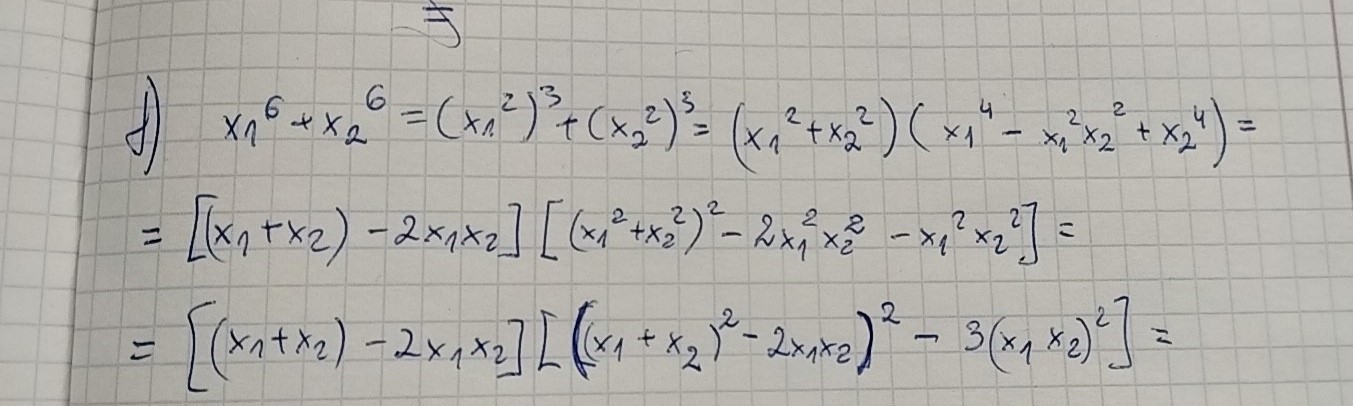 f) x₁⁶ + x₂⁶ = (x₁²)³ + (x₂²)³ = (x₁² + x₂²) (x₁⁴ − x₁²x₂² + x₂⁴) =
= [(x₁ + x₂) − 2x₁x₂] [(x₁² + x₂²)² − 2x₁²x₂² − x₁²x₂²] =
= [(x₁ + x₂) − 2x₁x₂] [((x₁ + x₂)² − 2x₁x₂)² − 3(x₁x₂)²] =